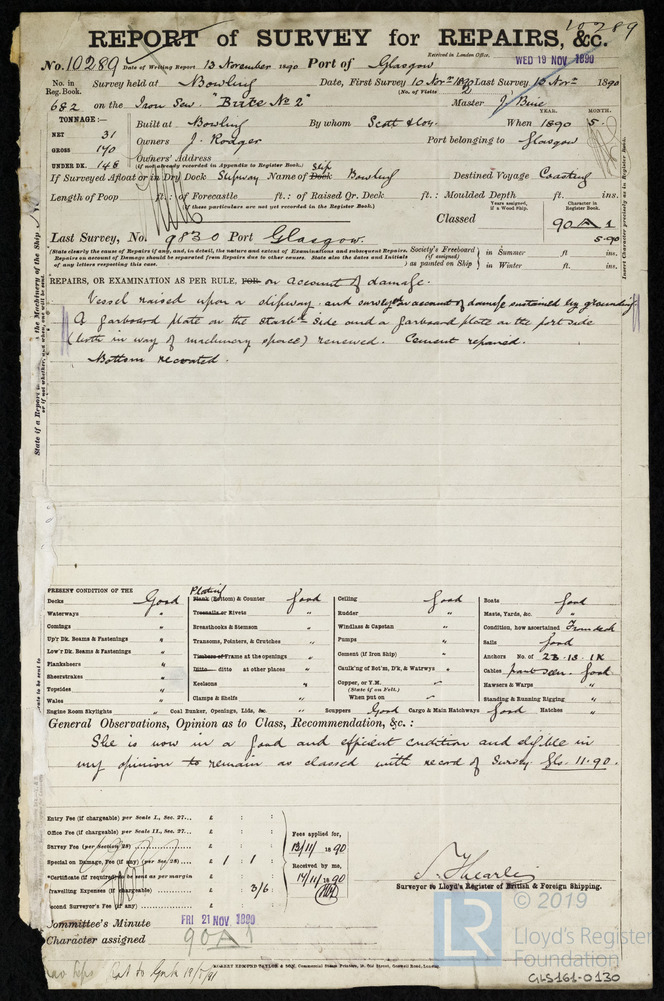 10289
REPORT of SURVEY for REPAIRS, &c.
Received in London Office.
WED 19 NOV. 1890
No. 10289 Date of Writing Report 13 November 1890 Port of Glasgow
No. in Reg. Book. Survey held at Bowling Date, First Survey 10 Novr 1890 Last Survey 13 Novr 1890
(No. of Visits 2)
682 on the Iron Scw. "Bute No 2" Master J Buie
TONNAGE:—
NET 31
GROSS 170
UNDER DK. 148
YEAR. MONTH.
Built at Bowling By whom Scott & Coy. When 1890 5.
Owners J. Rodger Port belonging to Glasgow
Owners' Address
(if not already recorded in Appendix to Register Book.)
If Surveyed Afloat or in Dry Dock Slipway Name of Slip Dock Bowling Destined Voyage Coasting
Length of Poop ft.: of Forecastle ft.: of Raised Qr. Deck ft.: Moulded Depth ft. ins.
(if these particulars are not yet recorded in the Register Book.)
Years assigned, if a Wood Ship.
Character in Register Book.
Classed 90A1
5-90
Last Survey, No. 9830 Port Glasgow.
(State clearly the cause of Repairs if any, and, in detail, the nature and extent of Examinations and subsequent Repairs.
Repairs on account of Damage should be separated from Repairs due to other causes. State also the dates and Initials
of any letters respecting this case.
Society's Freeboard (if assigned) as painted on Ship
in Summer ft. ins.
in Winter ft. ins.
REPAIRS, OR EXAMINATION AS PER RULE, FOR on account of damage.
Vessel raised upon a slipway and surveyed on account of damage sustained by grounding
A garboard plate on the starbd side and a garboard plate on the port side
(both in way of machinery space) renewed. Cement repaired.
Bottom recoated.
PRESENT CONDITION OF THE
Decks Good
Waterways "
Comings "
Up'r Dk. Beams & Fastenings "
Low'r Dk. Beams & Fastenings "
Planksheers "
Sheerstrakes "
Topsides "
Wales "
Engine Room Skylights "
Plating
Plank (Bottom) & Counter Good
Treenails or Rivets "
Breasthooks & Stemson "
Transoms, Pointers, & Crutches "
Timbers or Frame at the openings "
Ditto ditto at other places "
Keelsons "
Clamps & Shelfs "
Coal Bunker, Openings, Lids, &c. "
Ceiling Good
Rudder "
Windlass & Capstan "
Pumps "
Cement (If Iron Ship) "
Caulk'ng of Bot'm, D'k, & Watrwys "
Copper, or Y.M.
(State if on Felt.)
When put on
Scuppers Good Cargo & Main Hatchways Good Hatches "
Boats Good
Masts, Yards, &c. "
Condition, how ascertained From deck
Sails Good
Anchors No. of 2B. 1S. 1K
Cables Good
Hawsers & Warps "
Standing & Running Rigging "
General Observations, Opinion as to Class, Recommendation, &c. :
She is now in a good and efficient condition and eligible in
my opinion to remain as classed with record of Survey Gls. 11.90.
Entry Fee (if chargeable) per Scale I., Sec. 27... £ : :
Office Fee (if chargeable) per Scale II., Sec. 27... £ : :
Survey Fee (per Section 28) £ : :
Special on Damage, Fee (if any) (per Sec. 28) £ 1 : 1 :
*Certificate (if required) to be sent as per margin
Travelling Expenses (if chargeable) £ : 3/6 :
Second Surveyor's Fee (if any) £ : :
Fees applied for,
13/11/1890
Received by me,
14/11/1890
Surveyor to Lloyd's Register of British & Foreign Shipping.
Committee's Minute FRI 21 NOV 1890
Character assigned 90A1
ROBERT EDMUND TAYLOR & SON, Commercial Steam Printers, 19, Old Street, Goswell Road, London.
© 2019
LR
Lloyd's Register
Foundation
GLS161-0130